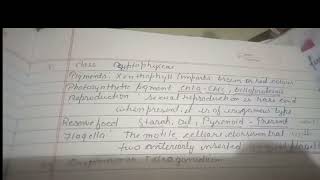 Class Cryptophyceae
Pigments: Xanthophyll imparts brown or red colour
Photosynthetic pigment chla - chlc, biliproteins
Reproduction Sexual reproduction is rare and
when present it is of isogamous type
Reserve food Starch, oil, Pyrenoid - Present
Flagella The motile cells are dorsiventral with
two anteriorly inserted